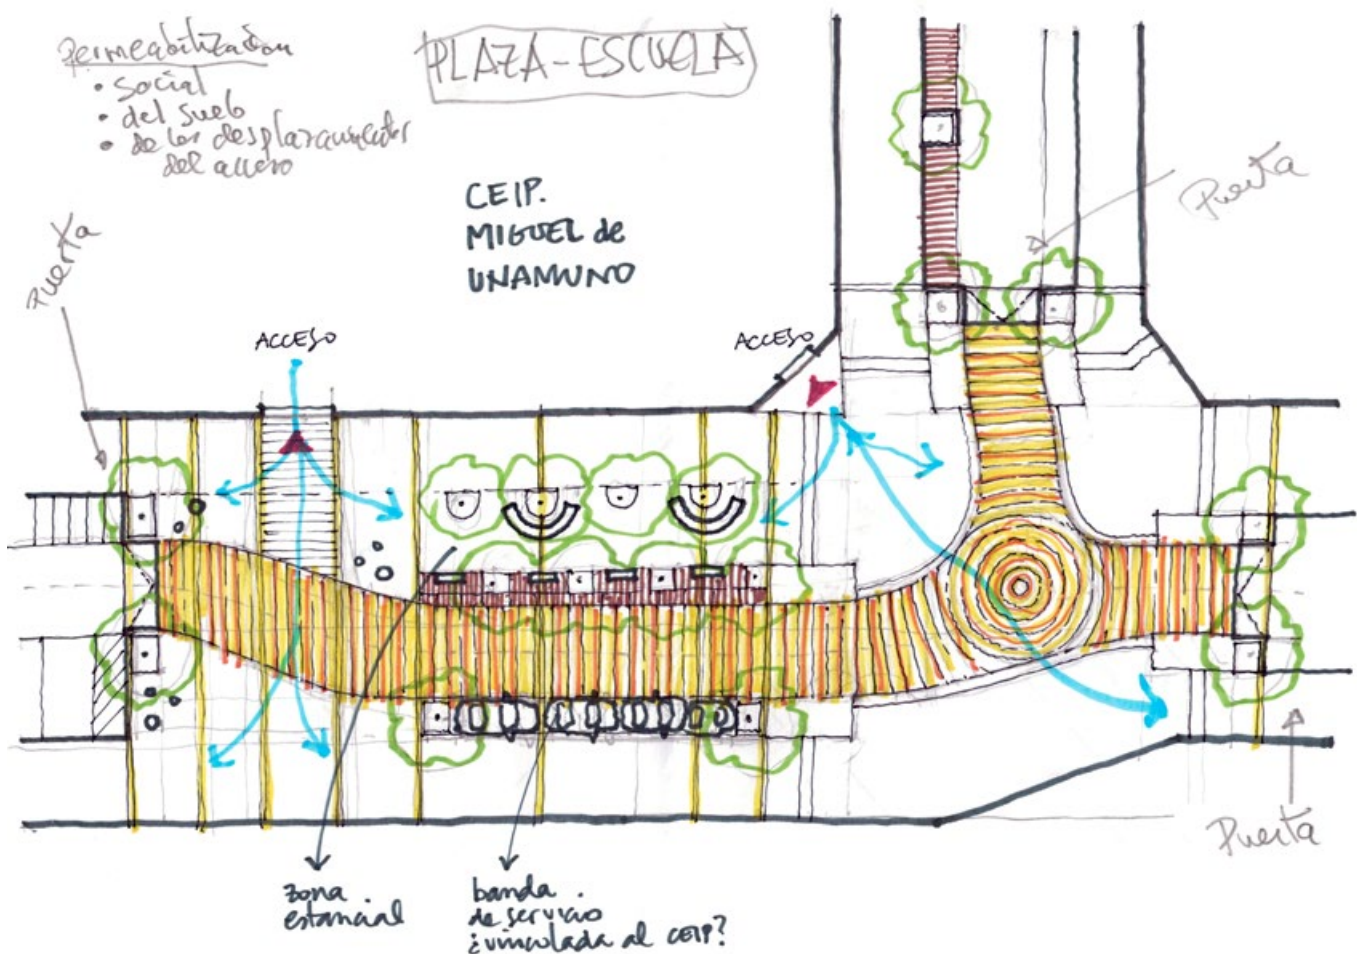 Permeabilización
• Social
• del suelo
• de los desplazamientos
del acceso
PLAZA-ESCUELA
CEIP.
MIGUEL de
UNAMUNO
Puerta
Puerta
ACCESO
ACCESO
Puerta
zona
estancial
banda
de servicio
¿vinculada al CEIP?